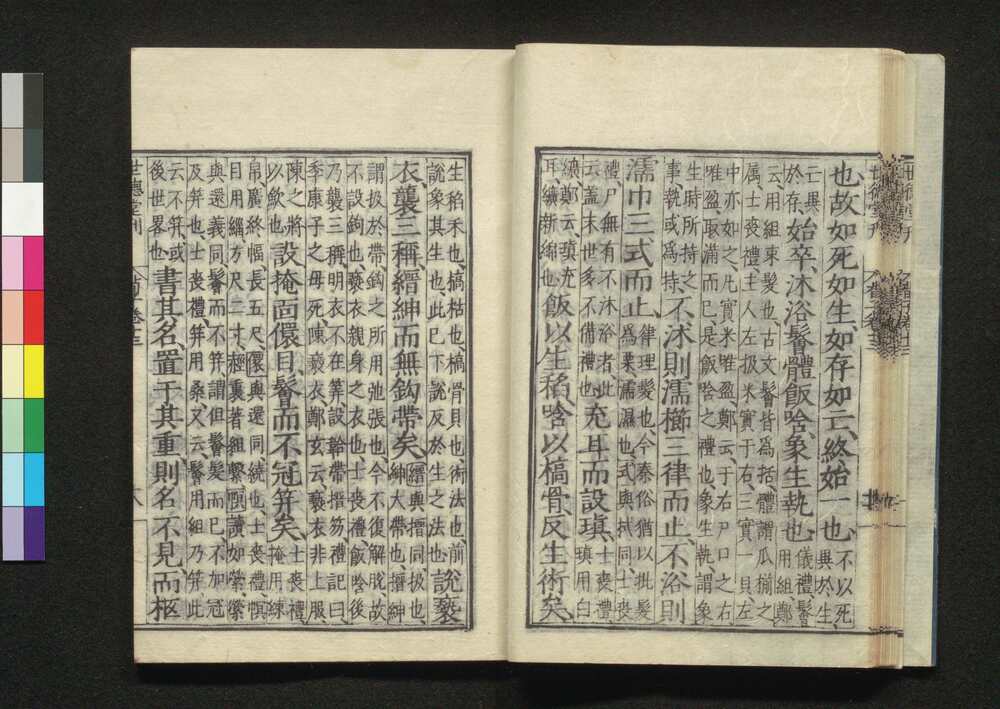 也、故如死如生、如存如亡、終始一也、不以死、
異於生、
亡異
於存、始卒、沐浴鬠體飯唅、象生執也、儀禮鬠
用組、鄭
云、用組束髮也、古文鬠皆爲括、體謂爪揃之
属、士喪禮、主人左扱米實于右、三實一貝、左
中亦如之、凡實米唯盈、鄭云、于右尸口之右
唯盈、取滿而已、是飯唅之禮也、象生執、謂象
生時所持之
事、執或爲持、不沐則濡櫛三律而止、不浴則
濡巾三式而止、律理髮也、今秦俗猶以批髮
爲栗濡濕也、式與拭同、士喪
禮、尸無有不沐浴者、此
云、盖末世多不備禮也、充耳而設瑱、士喪禮
瑱用白
纊、鄭云、瑱充
耳纊新綿也、飯以生稻唅以槁骨、反生術矣、
生稻禾也、槁枯也、槁骨貝也、術法也、前
說象其生也、此已下說反於生之法也、說褻
衣、襲三稱、縉紳而無鈎帶矣、縉與搢同、扱也
紳大帶也、搢紳
謂扱於帶鈎之所用弛張也、今不復解脫、故
不設鉤也、褻衣親身之衣也、士喪禮飯唅後
乃襲三稱、明衣不在筭、設韐帶搢笏、禮記曰、
季康子之母死、陳褻衣、鄭玄云、褻衣非上服、
陳之將
以歛也、設掩面儇目、鬠而不冠笄矣、士喪禮
掩用練
帛、廣終幅、長五尺、儇與還同、繞也、士喪禮、幎
目用緇、方尺二寸、䞓裏、著組繫、幎讀如縈、縈
與還義同、鬠而不笄、謂但鬠髮而已、不加冠
及笄也、士喪禮、笄用桑、又云、鬠用組乃笄、此
云不笄、或
後世異也、書其名、置于其重、則名不見、而柩
世德堂刊